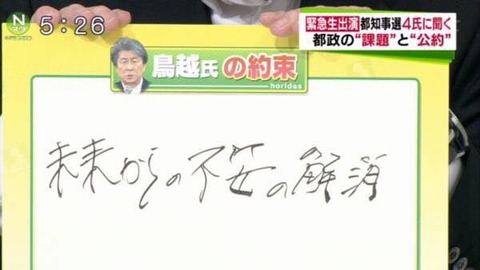 5:26
緊急生出演 都知事選4氏に聞く
都政の“課題”と“公約”
鳥越氏 の約束
horidas
未来からの不安の解消